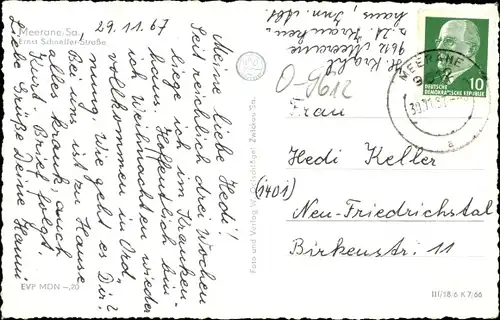 Meerane, Sa.
Ernst Schneller-Straße
29.11.67
Meine liebe Hedi!
Seit reichlich drei Wochen
liege ich im Kranken-
haus. Hoffentlich bin
ich Weihnachten wieder
vollkommen in Ord-
nung. Wie geht es Dir?
Bei uns ist zu Hause
alles krank, auch
Kurt. Brief folgt.
Liebe Grüße Deine Hanni
EVP MDN -,20
Foto und Verlag W.
9612 Meerane
Kranken
haus, Inn. Abt
O-9612
MEERANE
DEUTSCHE
DEMOKRATISCHE REPUBLIK
10
a
Frau
Hedi Keller
(1401)
Neu-Friedrichstal
Birkenstr. 11
III/18/6 K 7/66